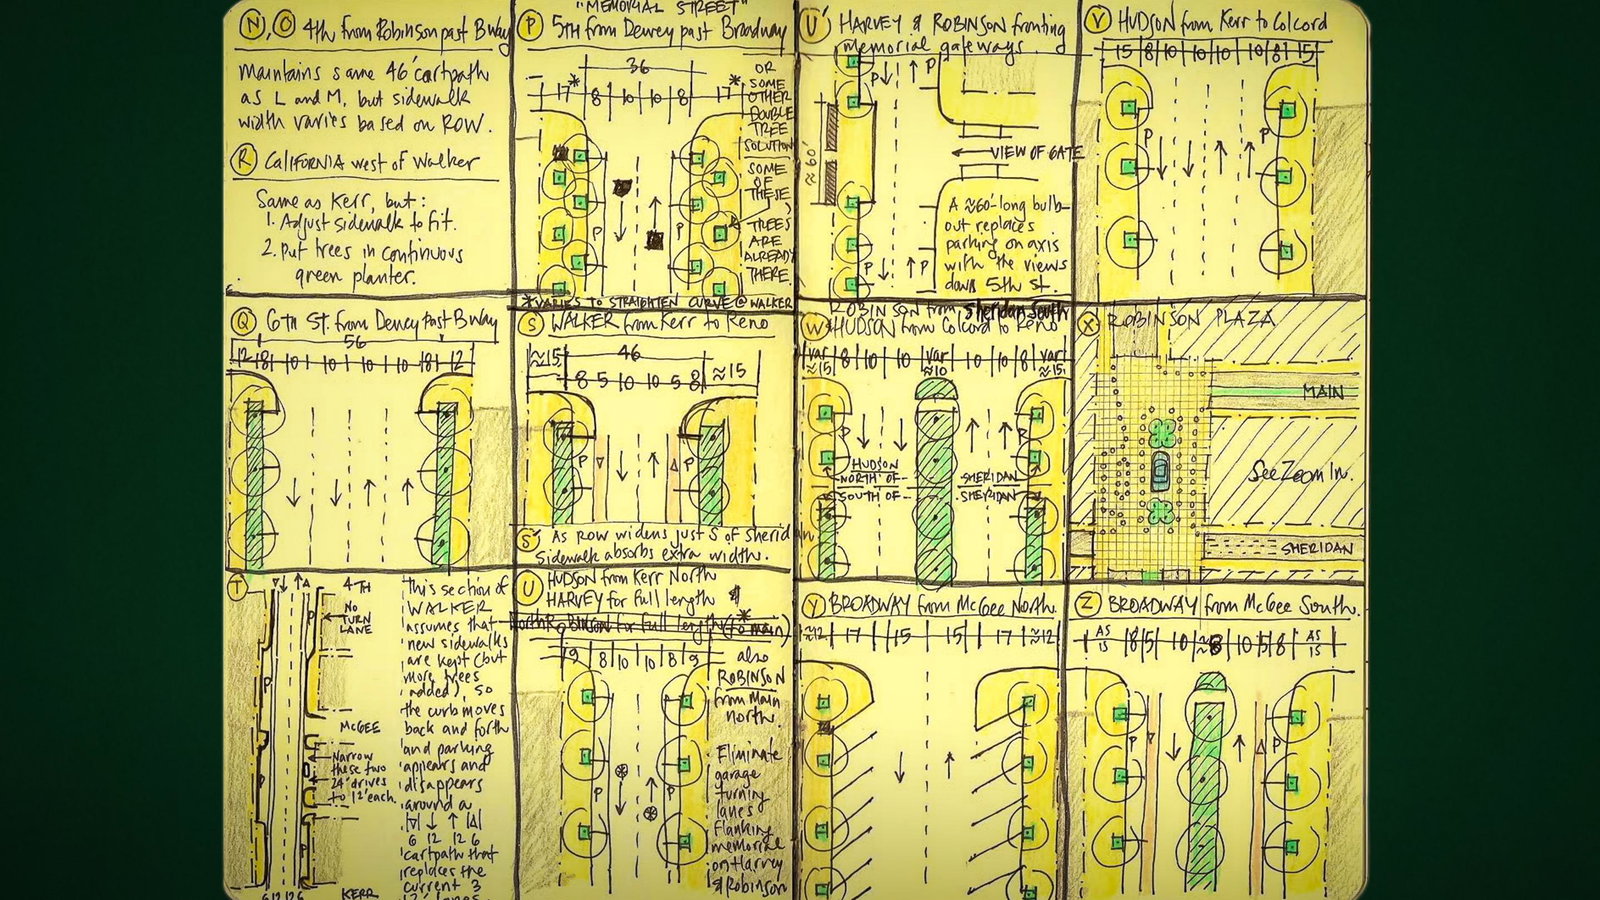 N, O 4th from Robinson past Bway
Maintains same 46' cartpath
as L and M, but sidewalk
width varies based on ROW.
R California west of Walker
Same as Kerr, but:
1. Adjust sidewalk to fit.
2. Put trees in continuous
green planter.
"MEMORIAL STREET"
P 5TH from Dewey past Broadway
36
17* 8 10 10 8 17*
OR
SOME
OTHER
DOUBLE
TREE
SOLUTION
SOME
OF
THESE
TREES
ARE
ALREADY
THERE.
P P
*VARIES TO STRAIGHTEN CURVE @ WALKER
U' HARVEY & ROBINSON fronting
memorial gateways.
P P
≈60'
VIEW OF GATE
A ≈60'-long bulb-
out replaces
parking on axis
with the views
down 5th st.
P P
V HUDSON from Kerr to Colcord
15 8 10 10 10 10 8 15
P P
Q 6TH ST. from Dewey past Bway
56
12 8 10 10 10 10 8 12
S WALKER from Kerr to Reno
46
≈15 8 5 10 10 5 8 ≈15
P P
S' As ROW widens just S of Sheridan
Sidewalk absorbs extra width.
ROBINSON from Sheridan South
W HUDSON from Colcord to Reno
var ≈15 8 10 10 var ≈10 10 10 8 var ≈15
P P
HUDSON
NORTH OF - SHERIDAN
SOUTH OF - SHERIDAN
X ROBINSON PLAZA
MAIN
See Zoom In.
SHERIDAN
T
4TH
NO
TURN
LANE
McGEE
Narrow
these two
24' drives
to 12' each.
KERR
This section of
WALKER
assumes that
new sidewalks
are kept (but
more trees
added), so
the curb moves
back and forth
and parking
appears and
disappears
around a
6 12 12 6
cartpath that
replaces the
current 3
U HUDSON from Kerr North
HARVEY for full length &
North Robinson for full length (to main)*
9 8 10 10 8 9
P P
also
ROBINSON
from Main
north.
Eliminate
garage
turning
lanes
flanking
memorial
on Harvey
& Robinson
Y BROADWAY from McGee North.
≈12 17 15 15 17 ≈12
Z BROADWAY from McGee South.
AS IS 8 5 10 ≈8 10 5 8 AS IS
P P